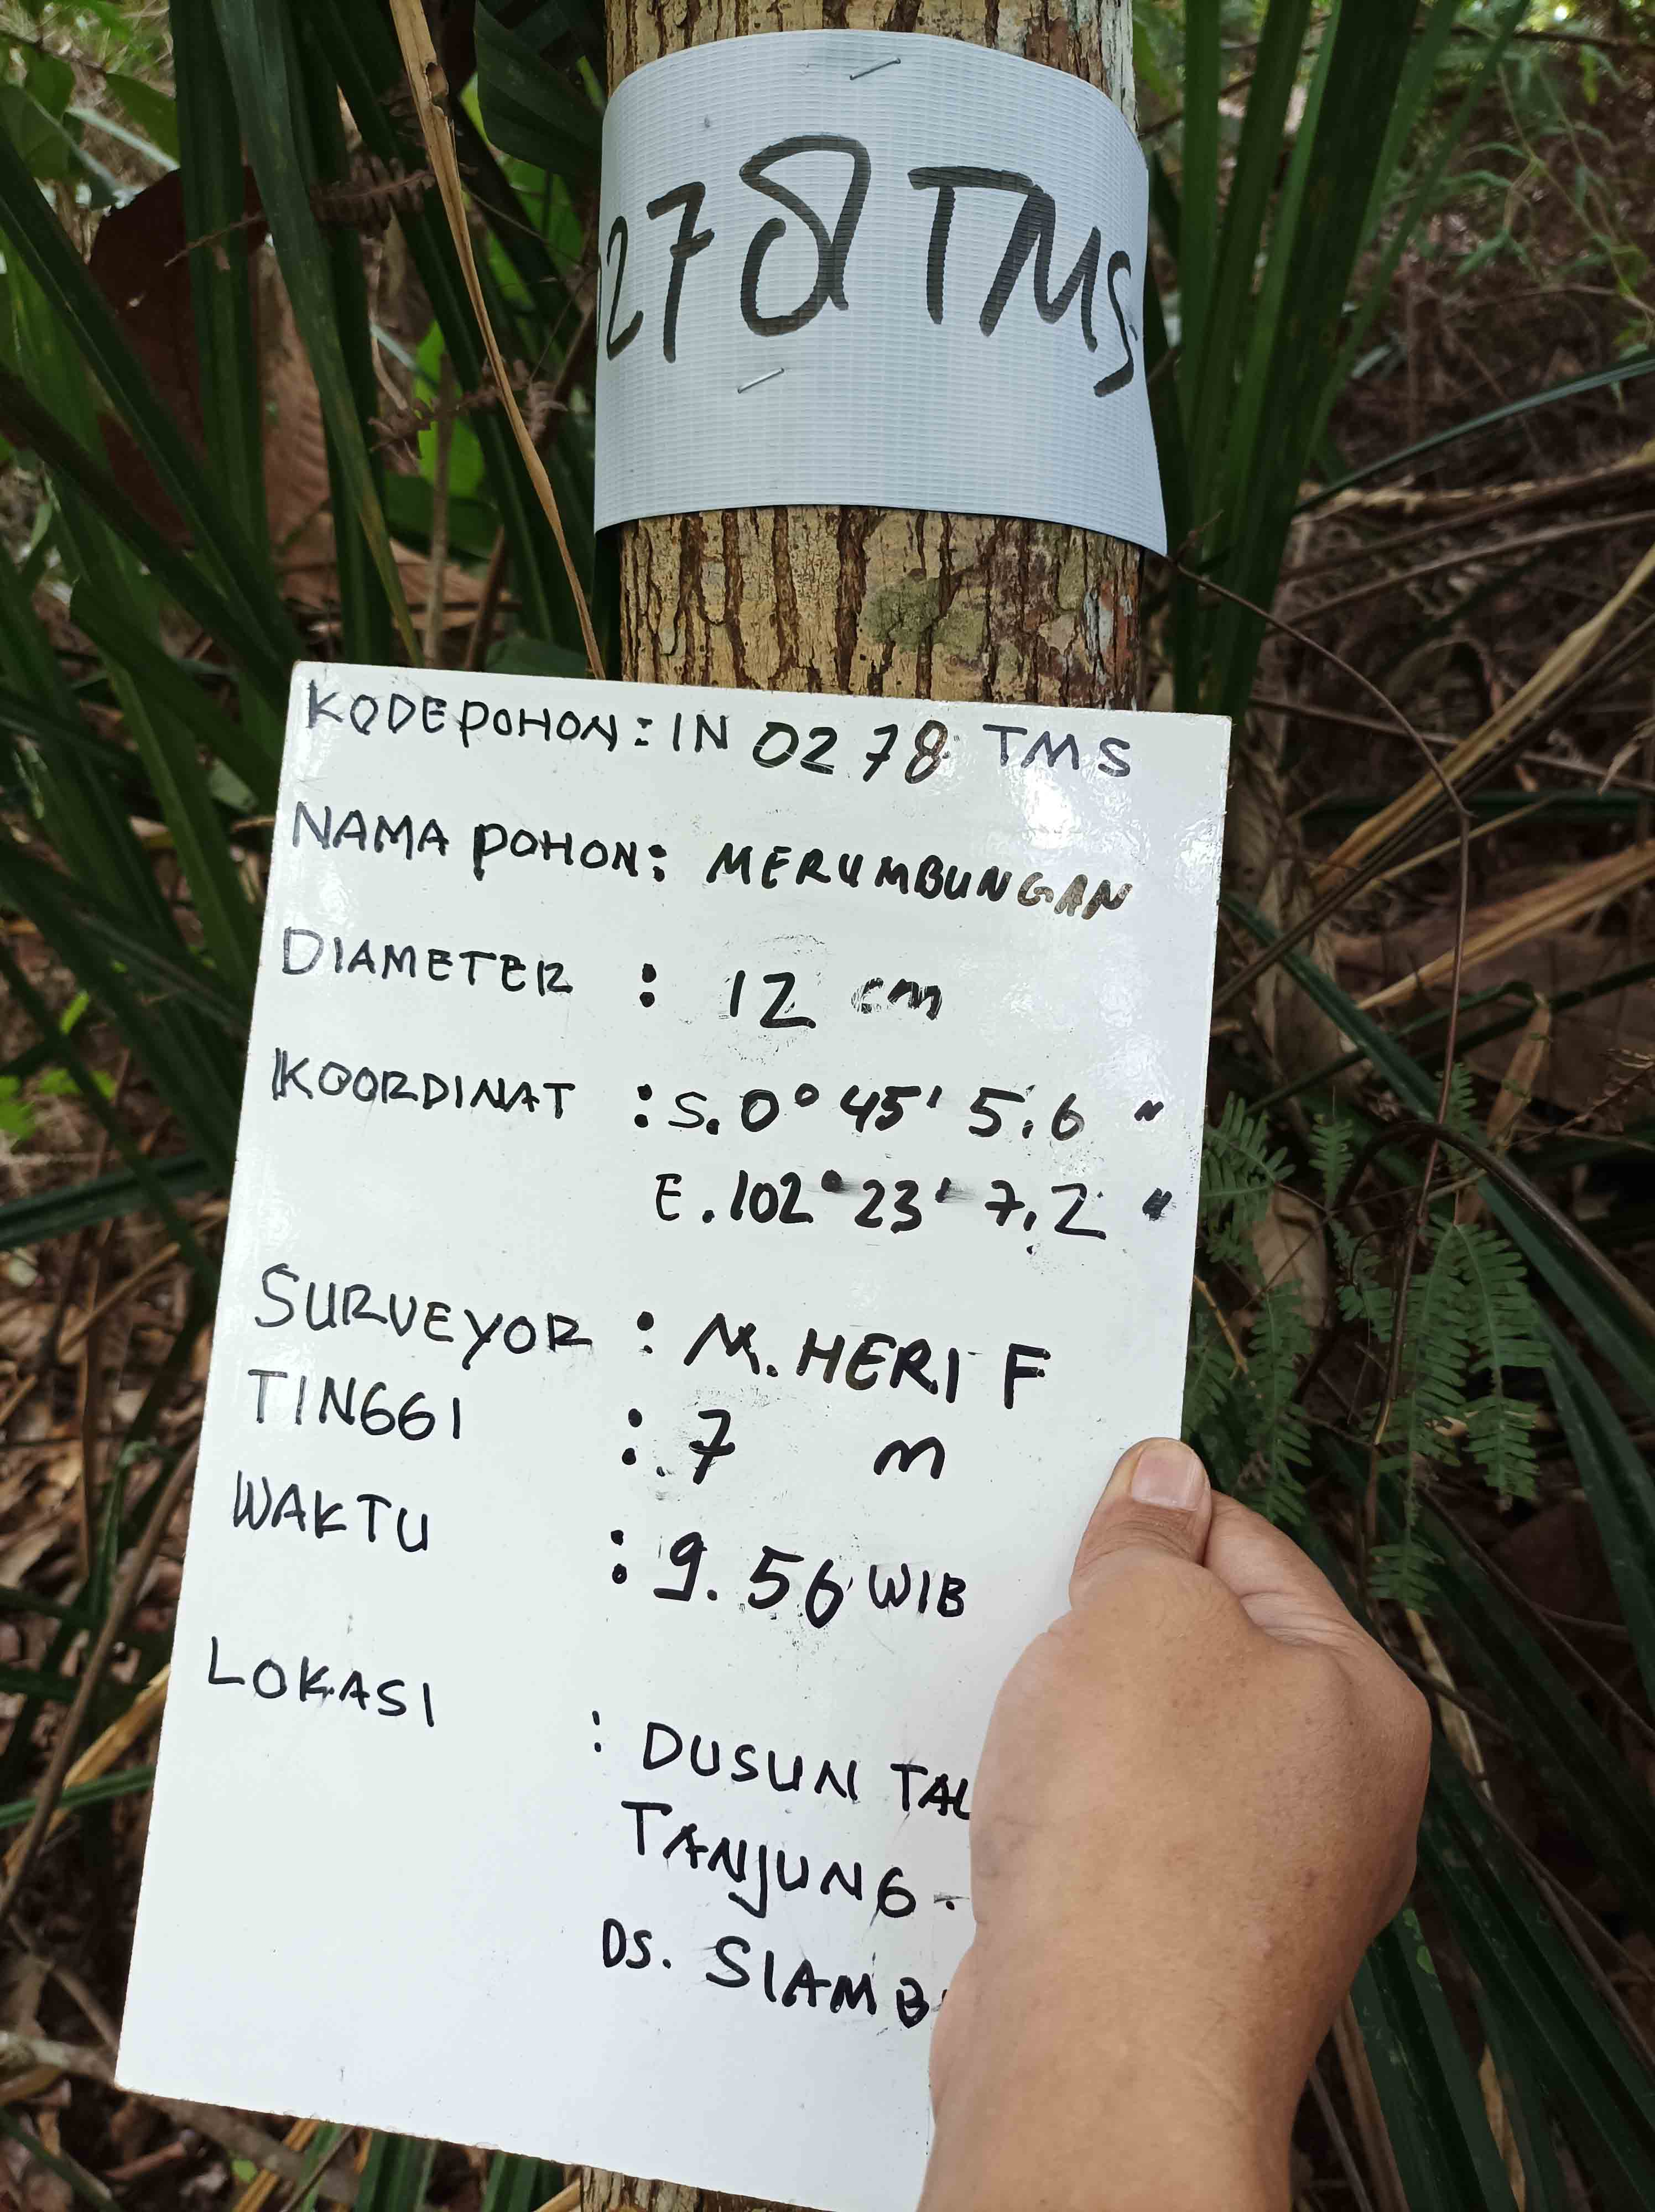 278 TMS
KODE POHON : IN 0278 TMS
NAMA POHON : MERUMBUNGAN
DIAMETER : 12 cm
KOORDINAT : S. 0° 45' 5.6 "
E. 102° 23' 7.2 "
SURVEYOR : M. HERI F
TINGGI : 7 m
WAKTU : 9.56 WIB
LOKASI : DUSUN
TANJUNG
DS.